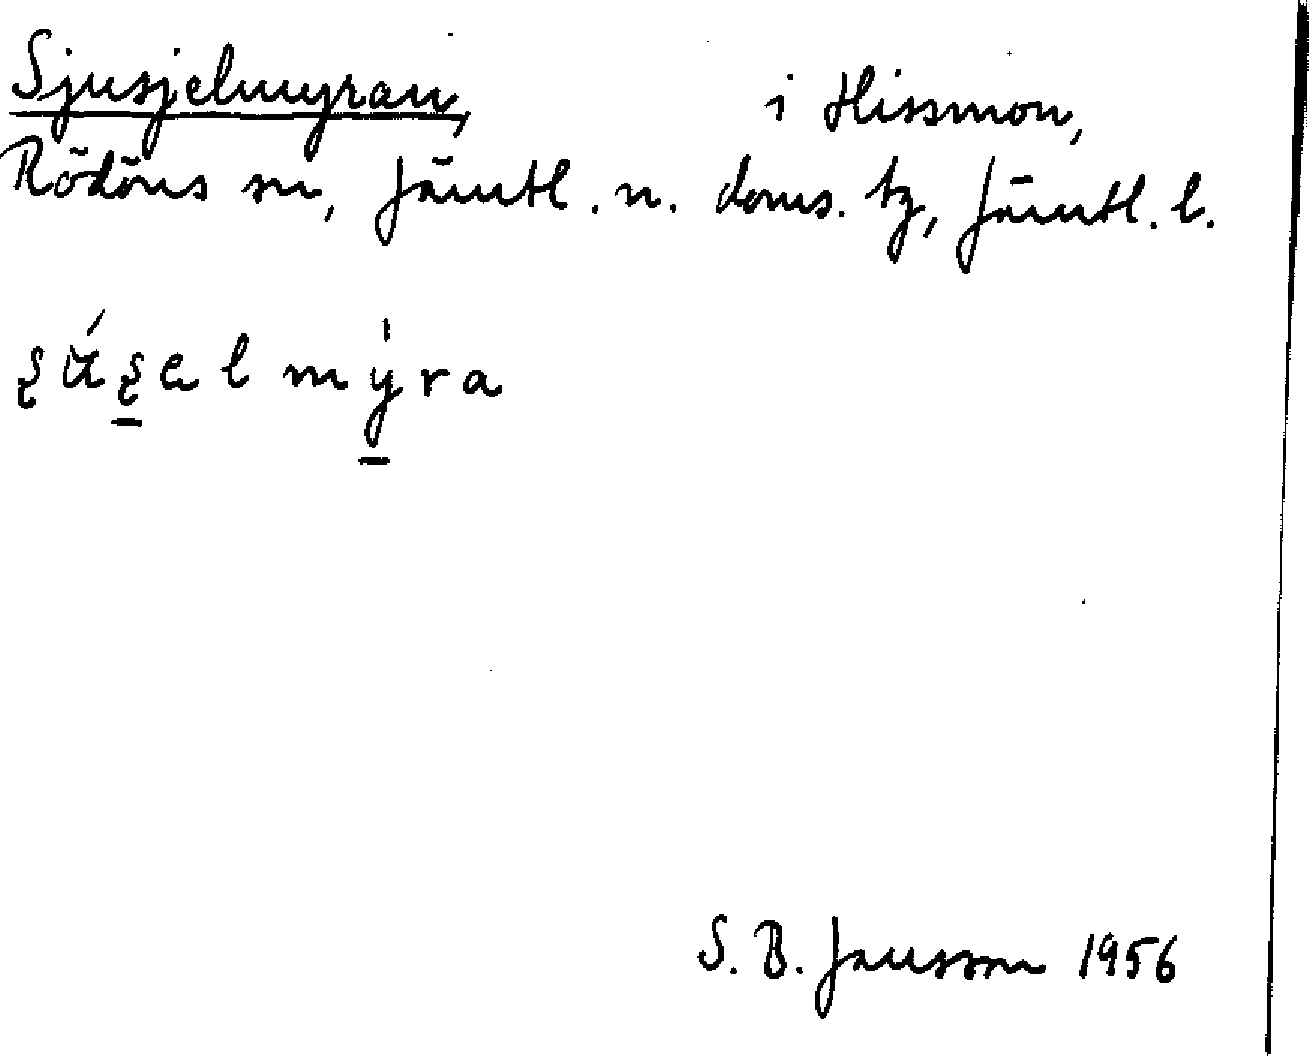 Sjusjelmyran, i Hissmon,
Rödöns sn, Jämtl. n. doms. tg, Jämtl. l.
S. B. Jansson 1956